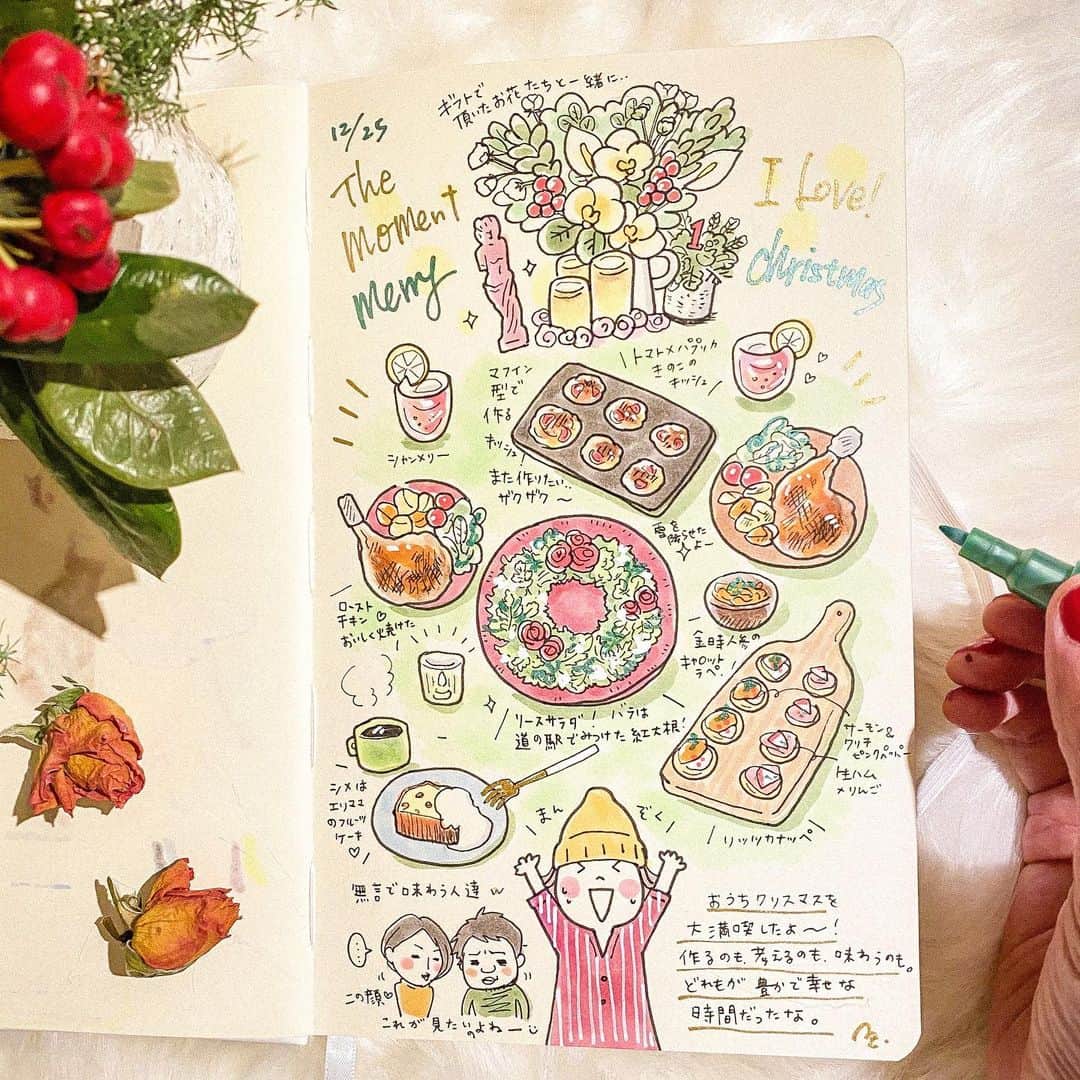 ギフトで
頂いたお花たちと一緒に‥
12/25
The
MOMENT
merry
I Love!
christmas
1
マフィン
型で
作る
キッシュ!
また作りたい‥
ザクザク〜
トマト×パプリカ
きのこの
キッシュ
シャンメリー
雪を
降らせた
よ〜
ロースト
チキン♡
おいしく焼けた
金時人参の
キャロット
ラペ!
リースサラダ! バラは
道の駅でみつけた紅大根!
サーモン&
クリチ
ピンクペッパー
生ハム
×りんご
リッツカナッペ
シメは
エリママ
のフルーツ
ケーキ
♡
まんぞく
無言で味わう人達w
この顔♡
これが見たいのよねー
おうちクリスマスを
大満喫したよ〜!
作るのも、考えるのも、味わうのも。
どれもが豊かで幸せな
時間だったな。